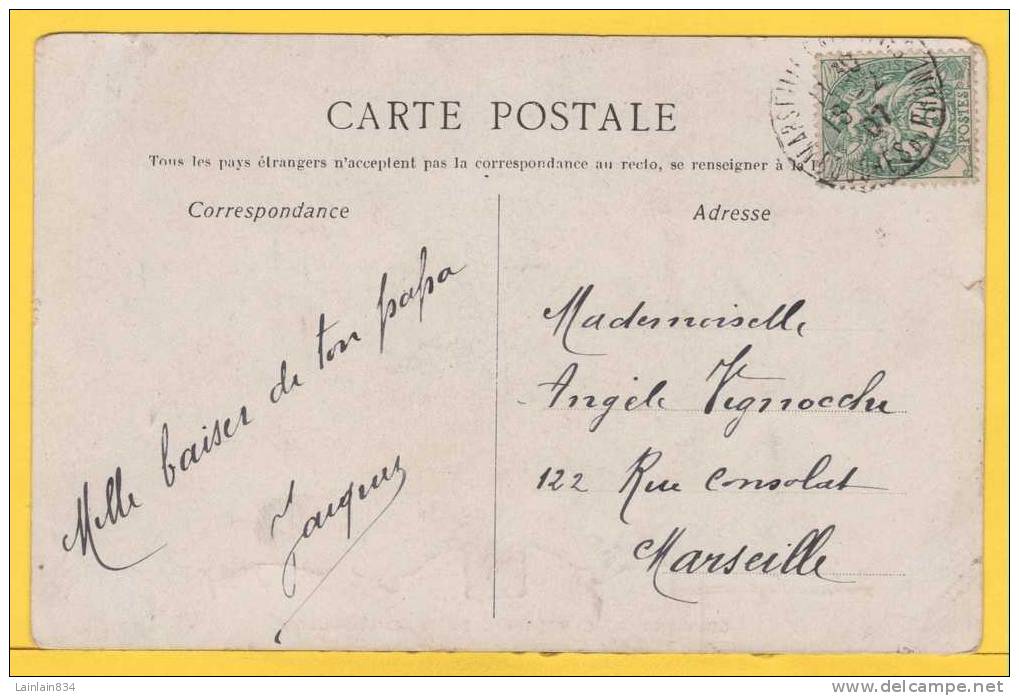 CARTE POSTALE
Tous les pays étrangers n'acceptent pas la correspondance au recto, se renseigner à la
Correspondance
Adresse
Mille baiser de ton papa
Jacques
Mademoiselle
Angèle Vignocchi
122 Rue Consolat
Marseille
18 -2
07
POSTES
Lainlain834
delcampe.net